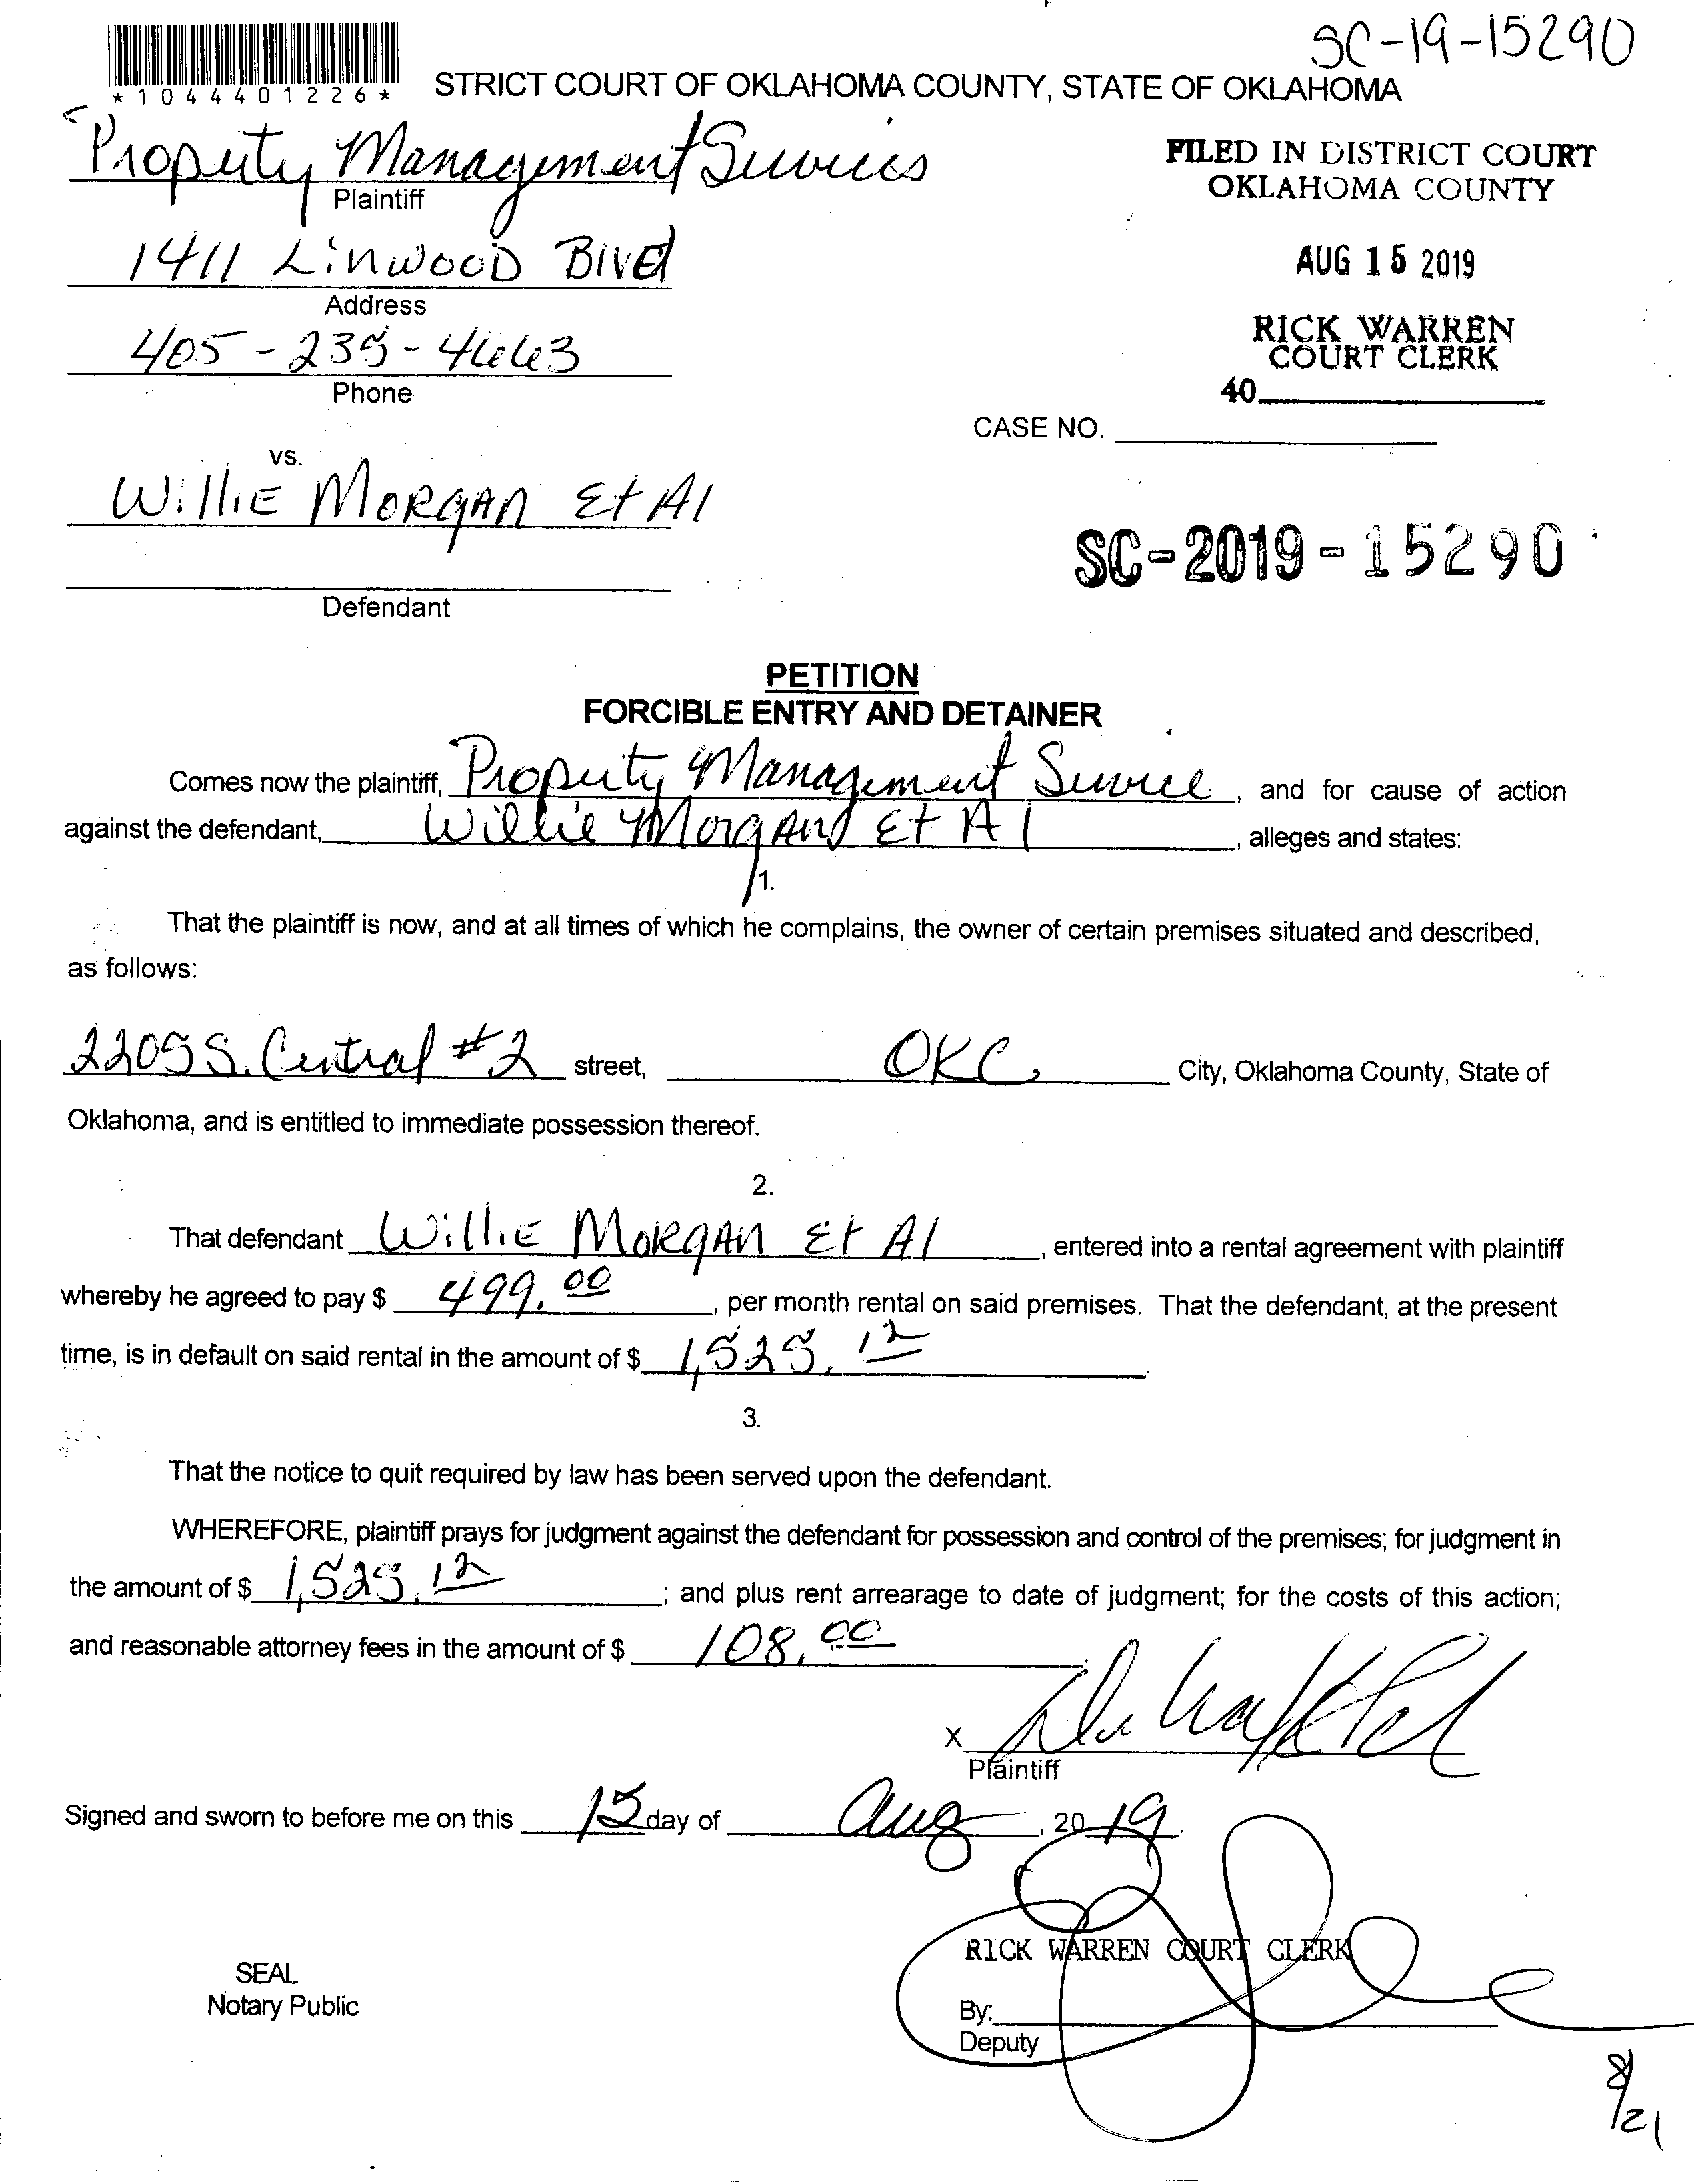 SC-19-15290
*1044401226*
STRICT COURT OF OKLAHOMA COUNTY, STATE OF OKLAHOMA
Property Management Services
Plaintiff
FILED IN DISTRICT COURT
OKLAHOMA COUNTY
1411 Linwood Blvd
Address
AUG 15 2019
405-235-4663
Phone
RICK WARREN
COURT CLERK
40
CASE NO.
vs.
Willie Morgan Et Al
SC-2019-15290
Defendant
PETITION
FORCIBLE ENTRY AND DETAINER
Comes now the plaintiff, Property Management Service, and for cause of action
against the defendant, Willie Morgan Et Al, alleges and states:
1.
That the plaintiff is now, and at all times of which he complains, the owner of certain premises situated and described,
as follows:
2205 S. Central #2 street, OKC, City, Oklahoma County, State of
Oklahoma, and is entitled to immediate possession thereof.
2.
That defendant Willie Morgan Et Al, entered into a rental agreement with plaintiff
whereby he agreed to pay $ 499.00, per month rental on said premises. That the defendant, at the present
time, is in default on said rental in the amount of $ 1,525.12
3.
That the notice to quit required by law has been served upon the defendant.
WHEREFORE, plaintiff prays for judgment against the defendant for possession and control of the premises; for judgment in
the amount of $ 1,525.12; and plus rent arrearage to date of judgment; for the costs of this action;
and reasonable attorney fees in the amount of $ 108.00
X
Plaintiff
Signed and sworn to before me on this 15 day of Aug, 2019
RICK WARREN COURT CLERK
SEAL
Notary Public
By:
Deputy
8/21